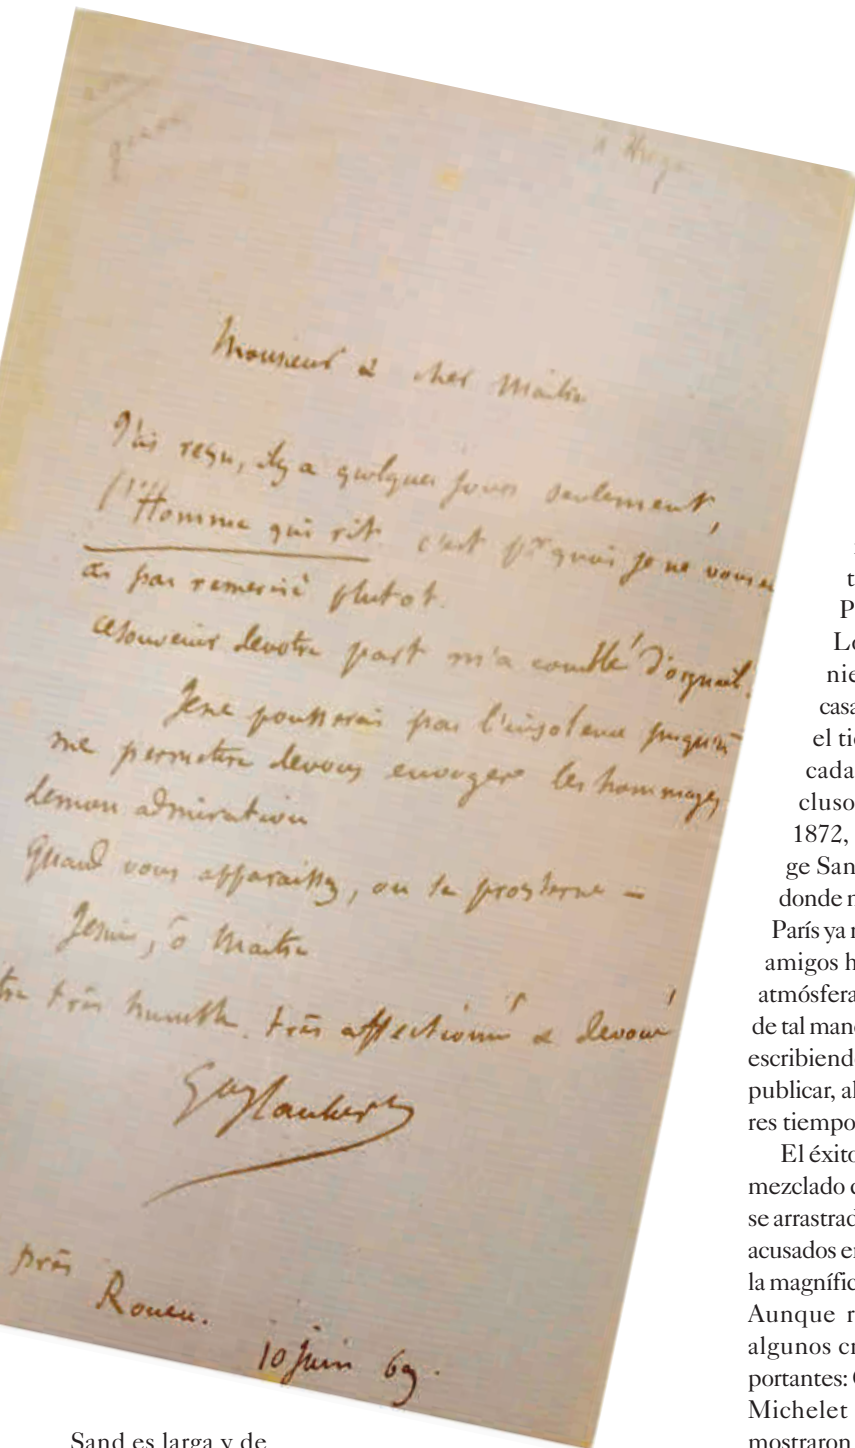 à Hugo
Monsieur & cher Maître
J'ai reçu, il y a quelques jours seulement,
l'Homme qui rit. c'est pr quoi je ne vous
ai pas remercié plutot.
ce souvenir de votre part m'a comblé d'orgueil.
Je ne pousserai pas l'insolence jusqu'à
me permettre de vous envoyer les hommages
de mon admiration
Quand vous apparaissez, on se prosterne –
Je suis, ô Maître
très humble, très affectionné & dévoué
Gve Flaubert
près
Rouen.
10 juin 69.
Sand es larga y de
t
P
Lo
nie
casa
el tie
cada
cluso
1872,
ge San
donde n
París ya n
amigos h
atmósfera
de tal mane
escribiendo
publicar, al
res tiempo
El éxito
mezclado d
se arrastrad
acusados en
la magnífic
Aunque r
algunos cr
portantes: G
Michelet
mostraron